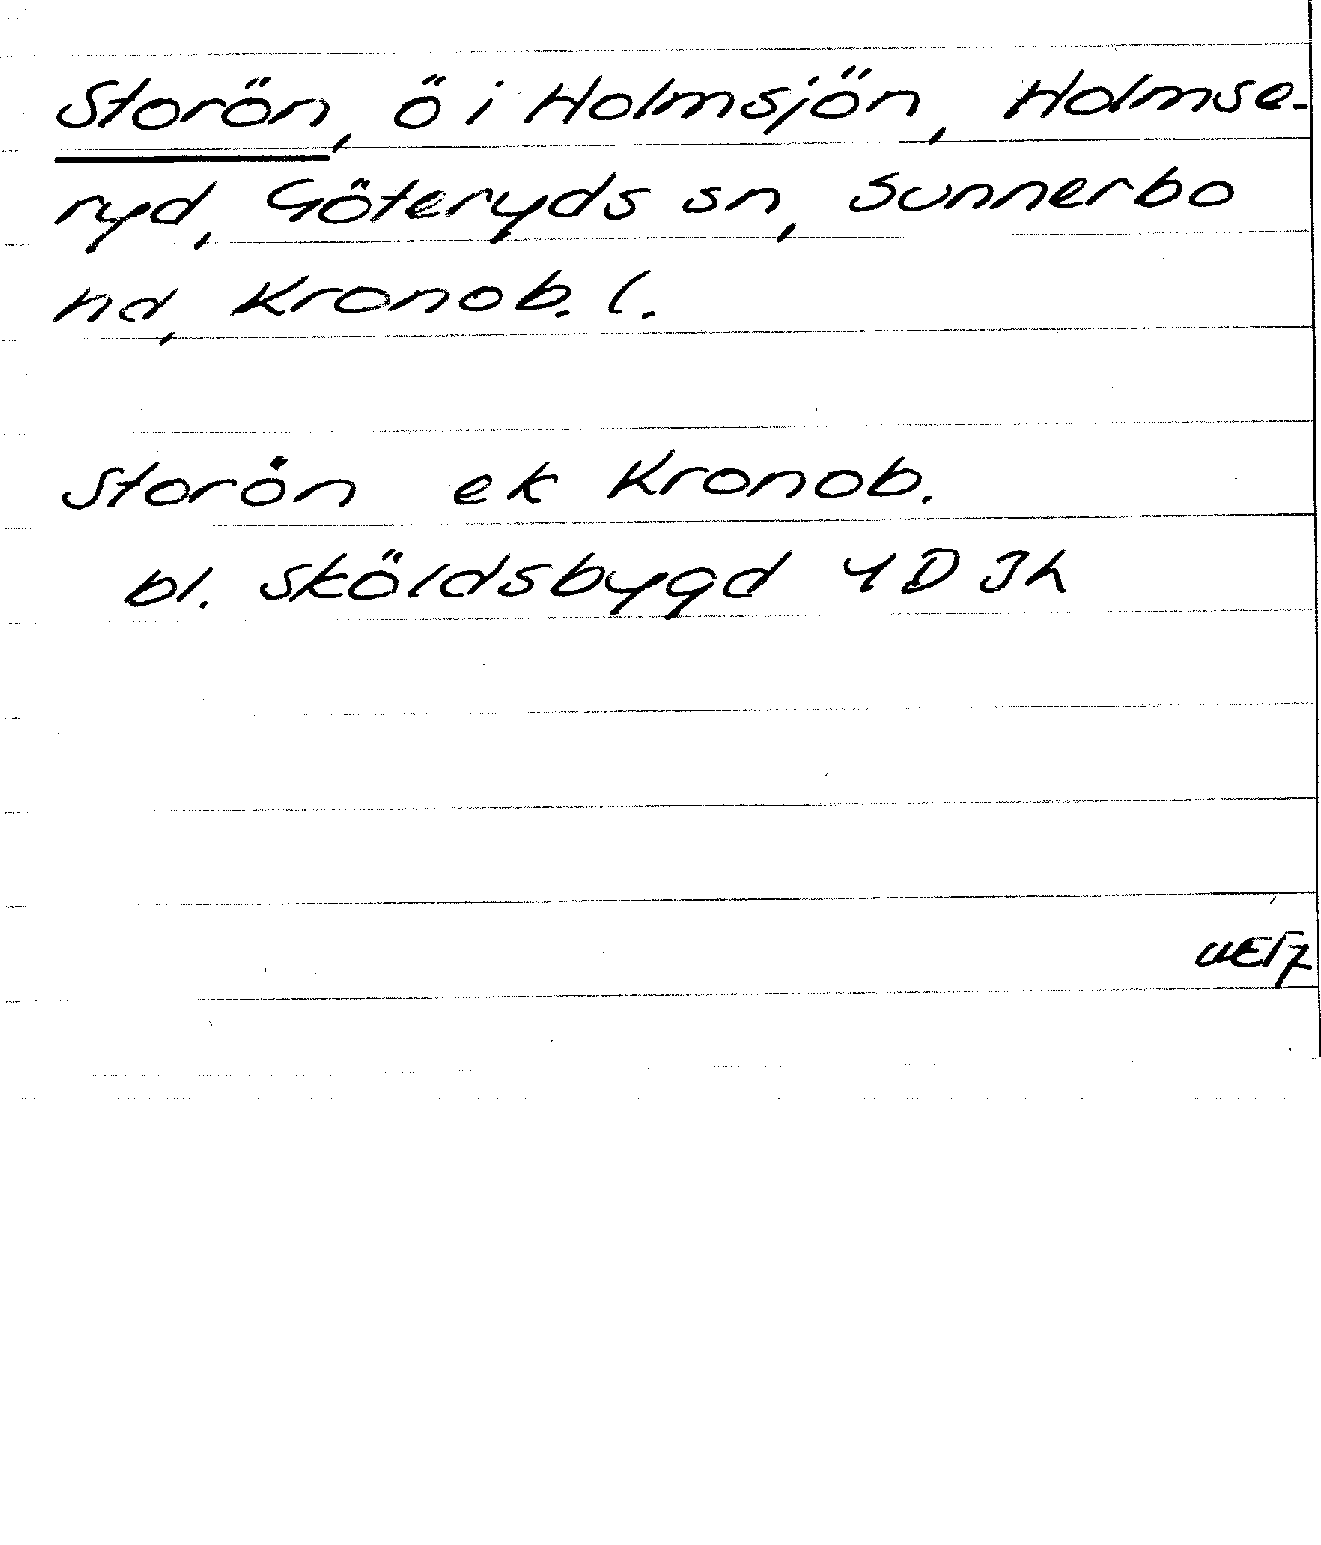 Storön, ö i Holmsjön, Holmse-
ryd, Göteryds sn, Sunnerbo
hd, Kronob. l.
Storön ek Kronob.
bl. Sköldsbygd 4D3h